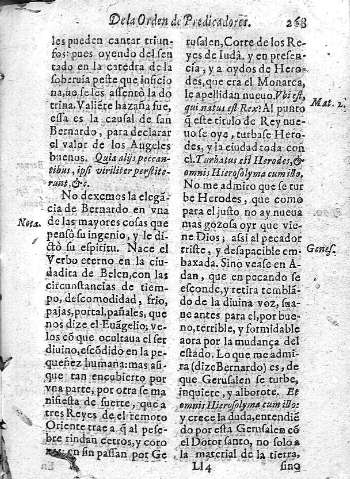 De la Orden de Predicadores. 268
les pueden cantar triun-
fos: pues oyendo del sen
tado en la catedra de la
soberuia peste que inficio
na, no se les assentò la do
trina. Valiẽte hazaña fue,
essa es la causal de san
Bernardo, para declarar
el valor de los Angeles
buenos. Quia alijs peccan
tibus, ipsi viriliter perstite-
runt, &c.
No dexemos la elegã
cia de Bernardo en vna
Nota.
de las mayores cosas que
pensò su ingenio, y le di-
ctò su espiritu. Nace el
Verbo eterno en la ciu-
dadita de Belen, con las
circunstancias de tiem-
po, descomodidad, frio,
pajas, portal, pañales, que
nos dize el Euãgelio; ve-
los cõ que ocultaua el ser
diuino, escõdido en la pe-
queñez humana: mas aũ-
que tan encubierto por
vna parte, por otra se ma
nifiesta de fuerte, que a
tres Reyes de el remoto
Oriente trae a q̃l pese-
bre rindan cetros, y coro
nas; en sin passan por Ge
rusalen, Corte de los Re-
yes de Iudà, y en presen-
cia, y a oydos de Hero-
des, que era el Monarca,
le apellidan nueuo. Vbi est,
qui natus est Rex? Al punto
Mat. 2.
q̃ este titulo de Rey nue-
uo se oye, turbase Hero-
des, y la ciudad toda con
el. Turbatus est Herodes, &
omnis Hierosolyma cum illo.
No me admiro que se tur
be Herodes, que como
para el justo no ay nueua
mas gozosa oyr que vie-
ne Dios; assi al pecador
triste, y desapacible em-
baxada. Sino vease en A-
Genes.
dan, que en pecando se
esconde, y retira temblã-
do de la diuina voz, sua-
ue antes para el, por bue-
no, terrible, y formidable
aora por la mudança del
estado. Lo que me admi-
ra (dize Bernardo) es, de
que Gerusalen se turbe,
inquiete, y alborote. Et
omnis Hierosolyma cum illo:
y crece la duda, entendiẽ
do por esta Gerusalen cõ
el Dotor santo, no solo a
la material de la tierra,
Ll 4 sino